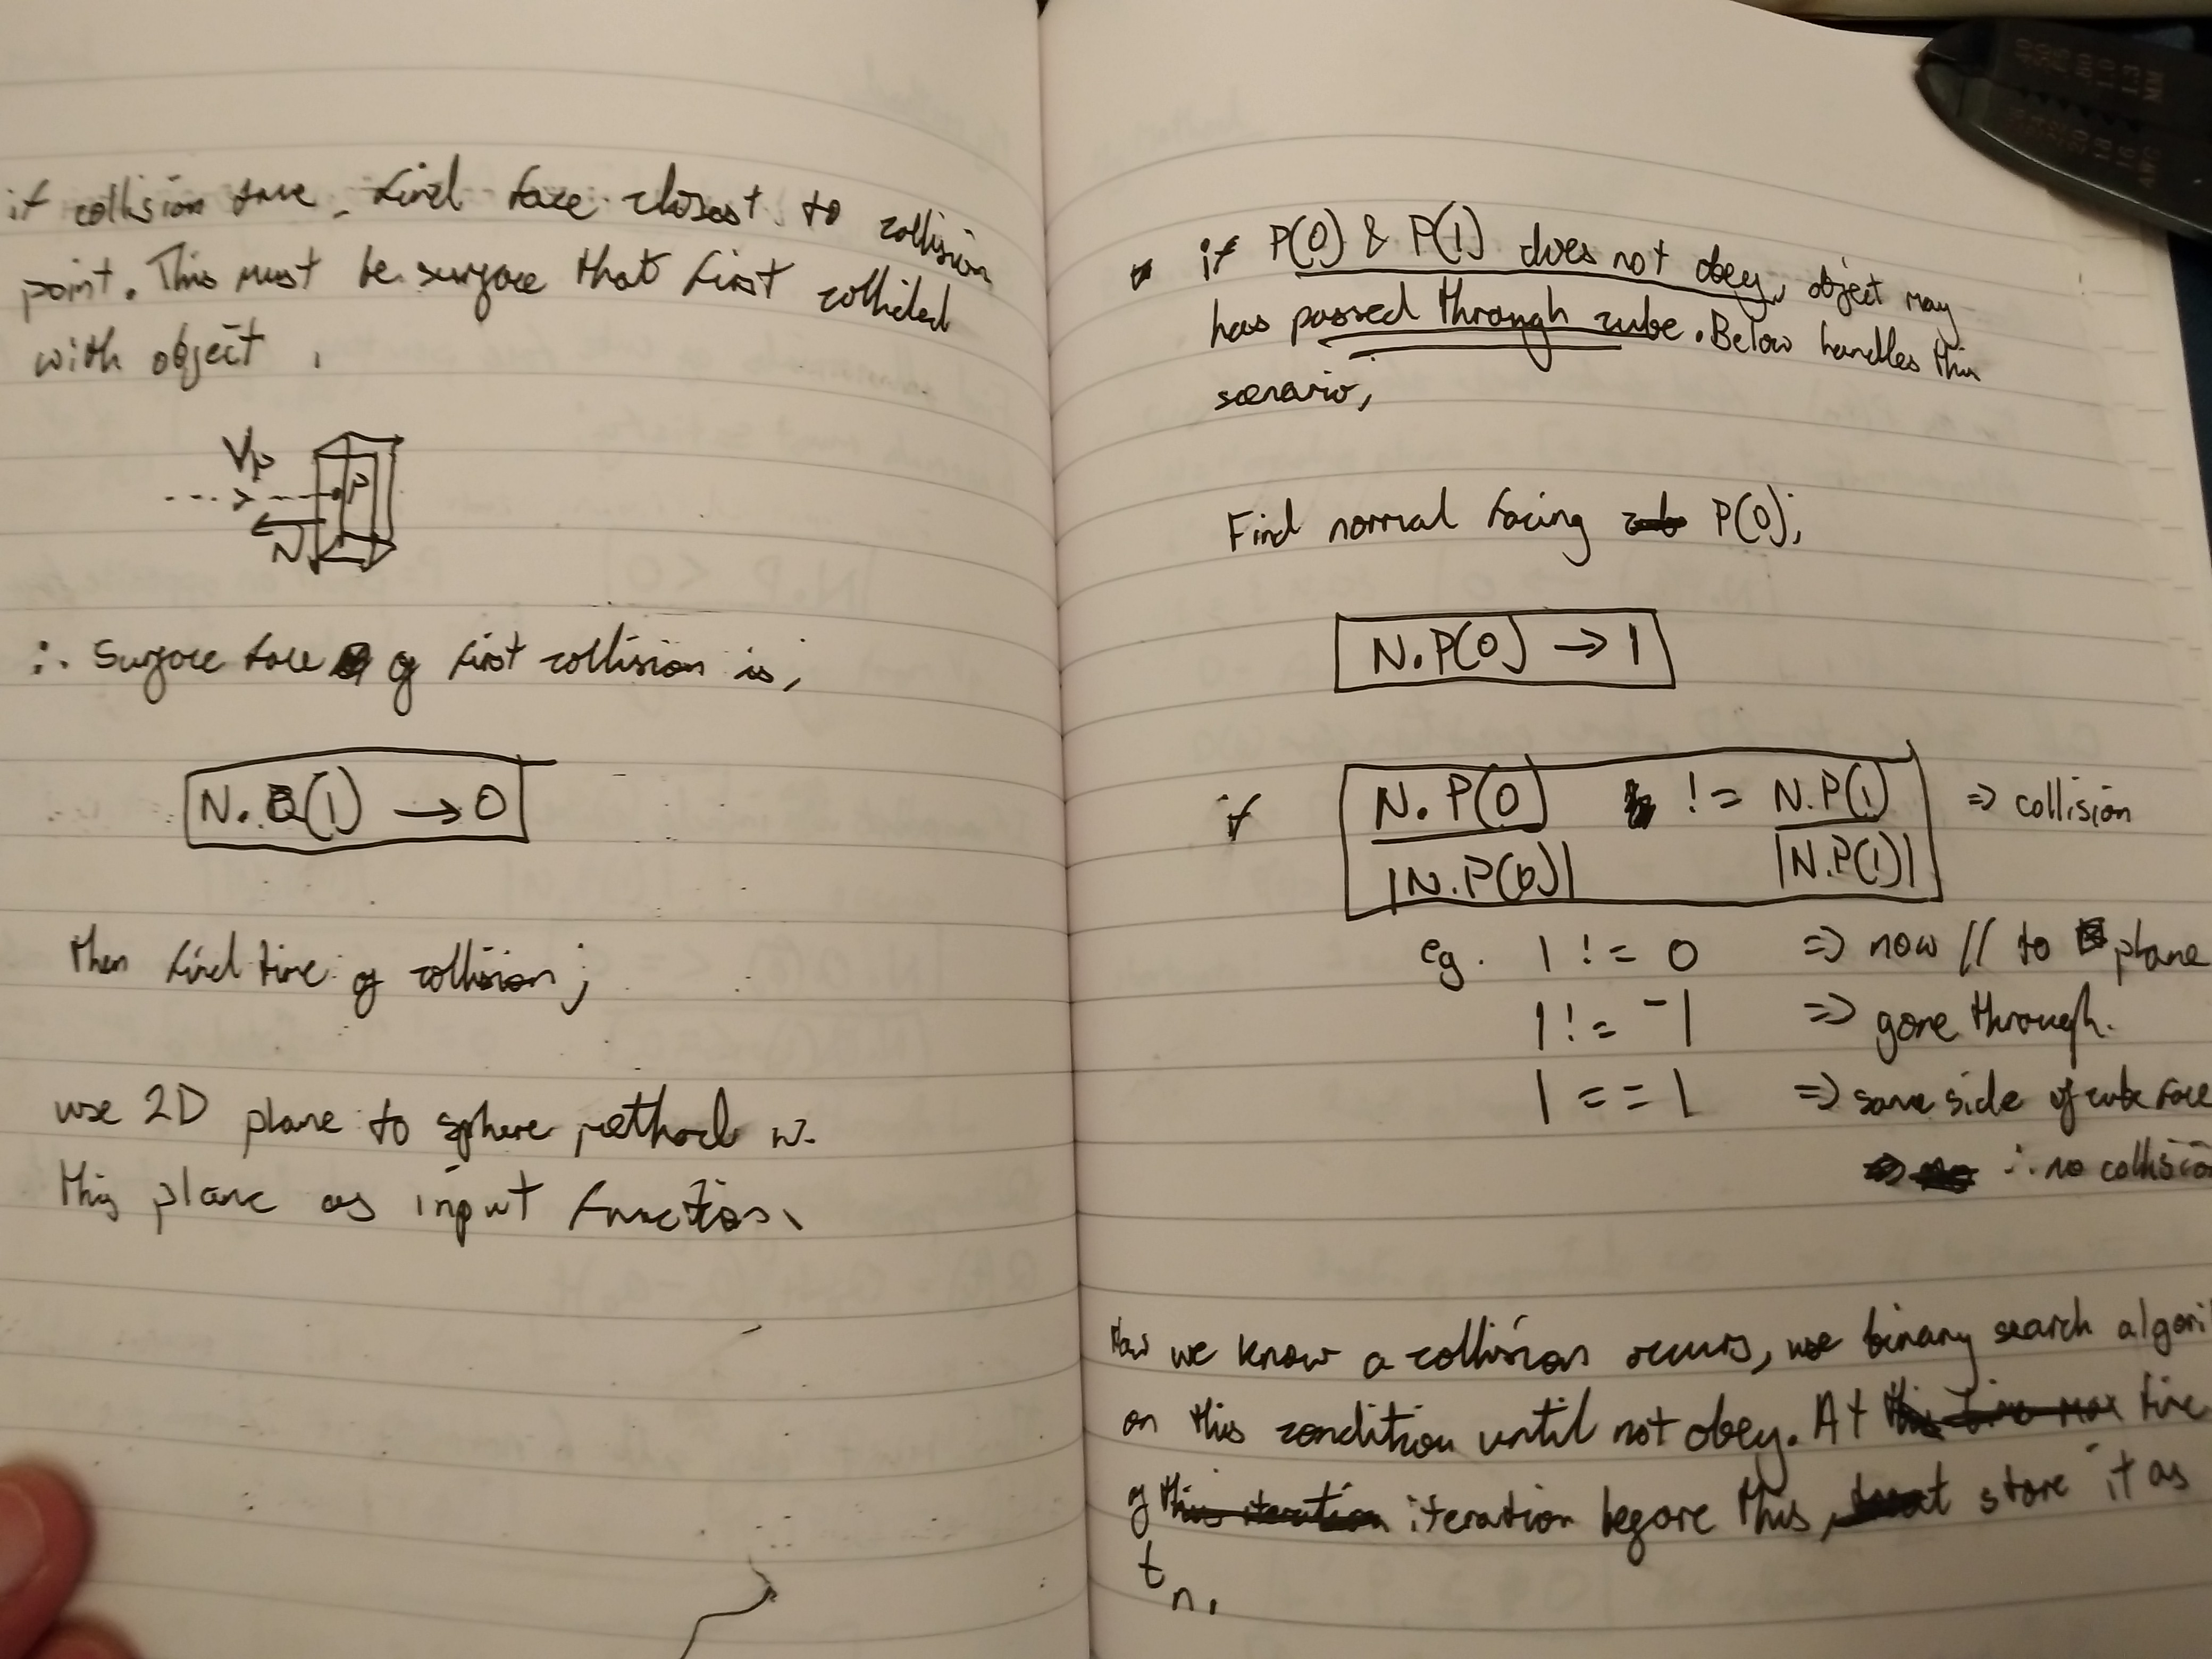 if collision true, find face closest to collision
point. This must be surface that first collided
with object.
Vp
P
N
∴ Surface face of first collision is,
N.Q(1) → 0
then find time of collision;
use 2D plane to sphere method w.
this plane as input function.
if P(0) & P(1) does not obey, object may
has passed through cube. Below handles this
scenario,
Find normal facing P(0);
N.P(0) → 1
if N.P(0) / |N.P(0)| != N.P(1) / |N.P(1)| => collision
eg. 1 != 0 => now // to plane
1 != -1 => gone through.
1 == 1 => same side of cube face
∴ no collision
Now we know a collision occurs, use binary search algori
on this condition until not obey. At time
of iteration before this, store it as
tn.
40
30
1.0
1.3
MM
20
18
16
AWG